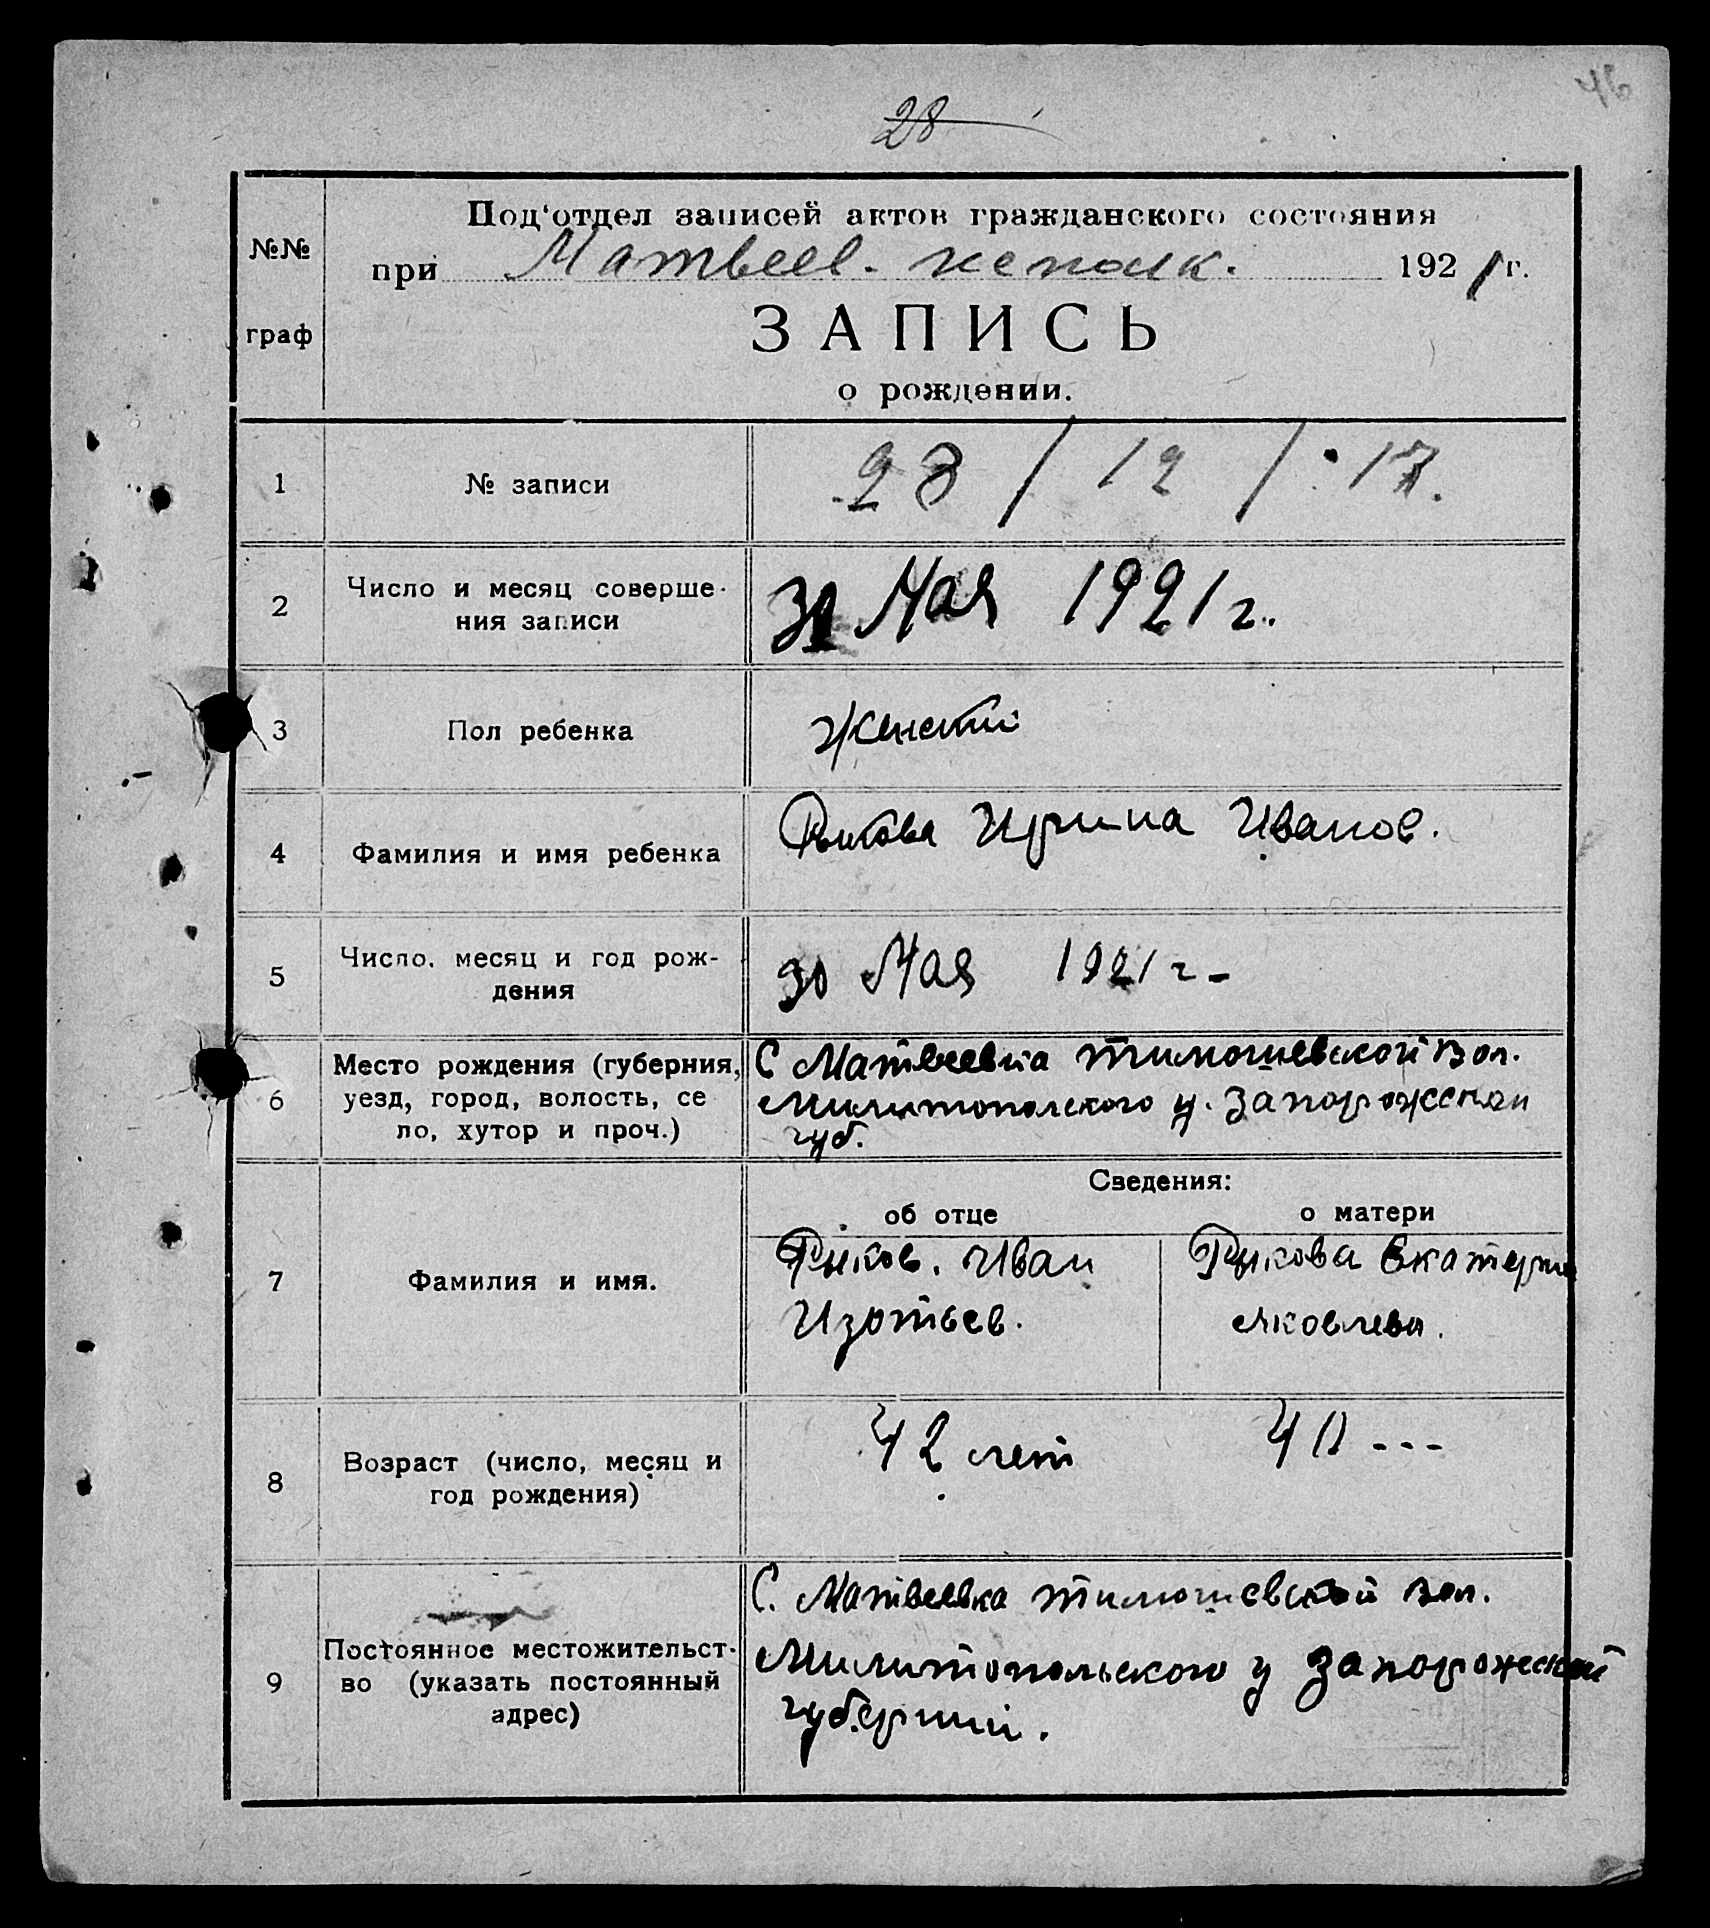 28
Под‘отдел записей актов гражданского состояния
№№
при Матвеев. исполк. 1921 г.
граф
ЗАПИСЬ
о рождении.
1 № записи 28 / 12 / 17.
2 Число и месяц соверше-
ния записи 31 Мая 1921 г.
3 Пол ребенка Женский
4 Фамилия и имя ребенка Рыкова Ирина Иванов.
5 Число, месяц и год рож-
дения 30 Мая 1921 г.
6 Место рождения (губерния,
уезд, город, волость, се
ло, хутор и проч.)
С Матвеевка Тимошевской вол.
Милитопольского у. Запорожской
губ.
Сведения:
об отце о матери
7 Фамилия и имя.
Рыков. Иван
Изотьев.
Рыкова Екатерина
Яковлева.
8 Возраст (число, месяц и
год рождения)
42 лет 40 ---
9 Постоянное местожительст-
во (указать постоянный
адрес)
С. Матвеевка Тимошевской вол.
Милитопольского у Запорожской
губернии.